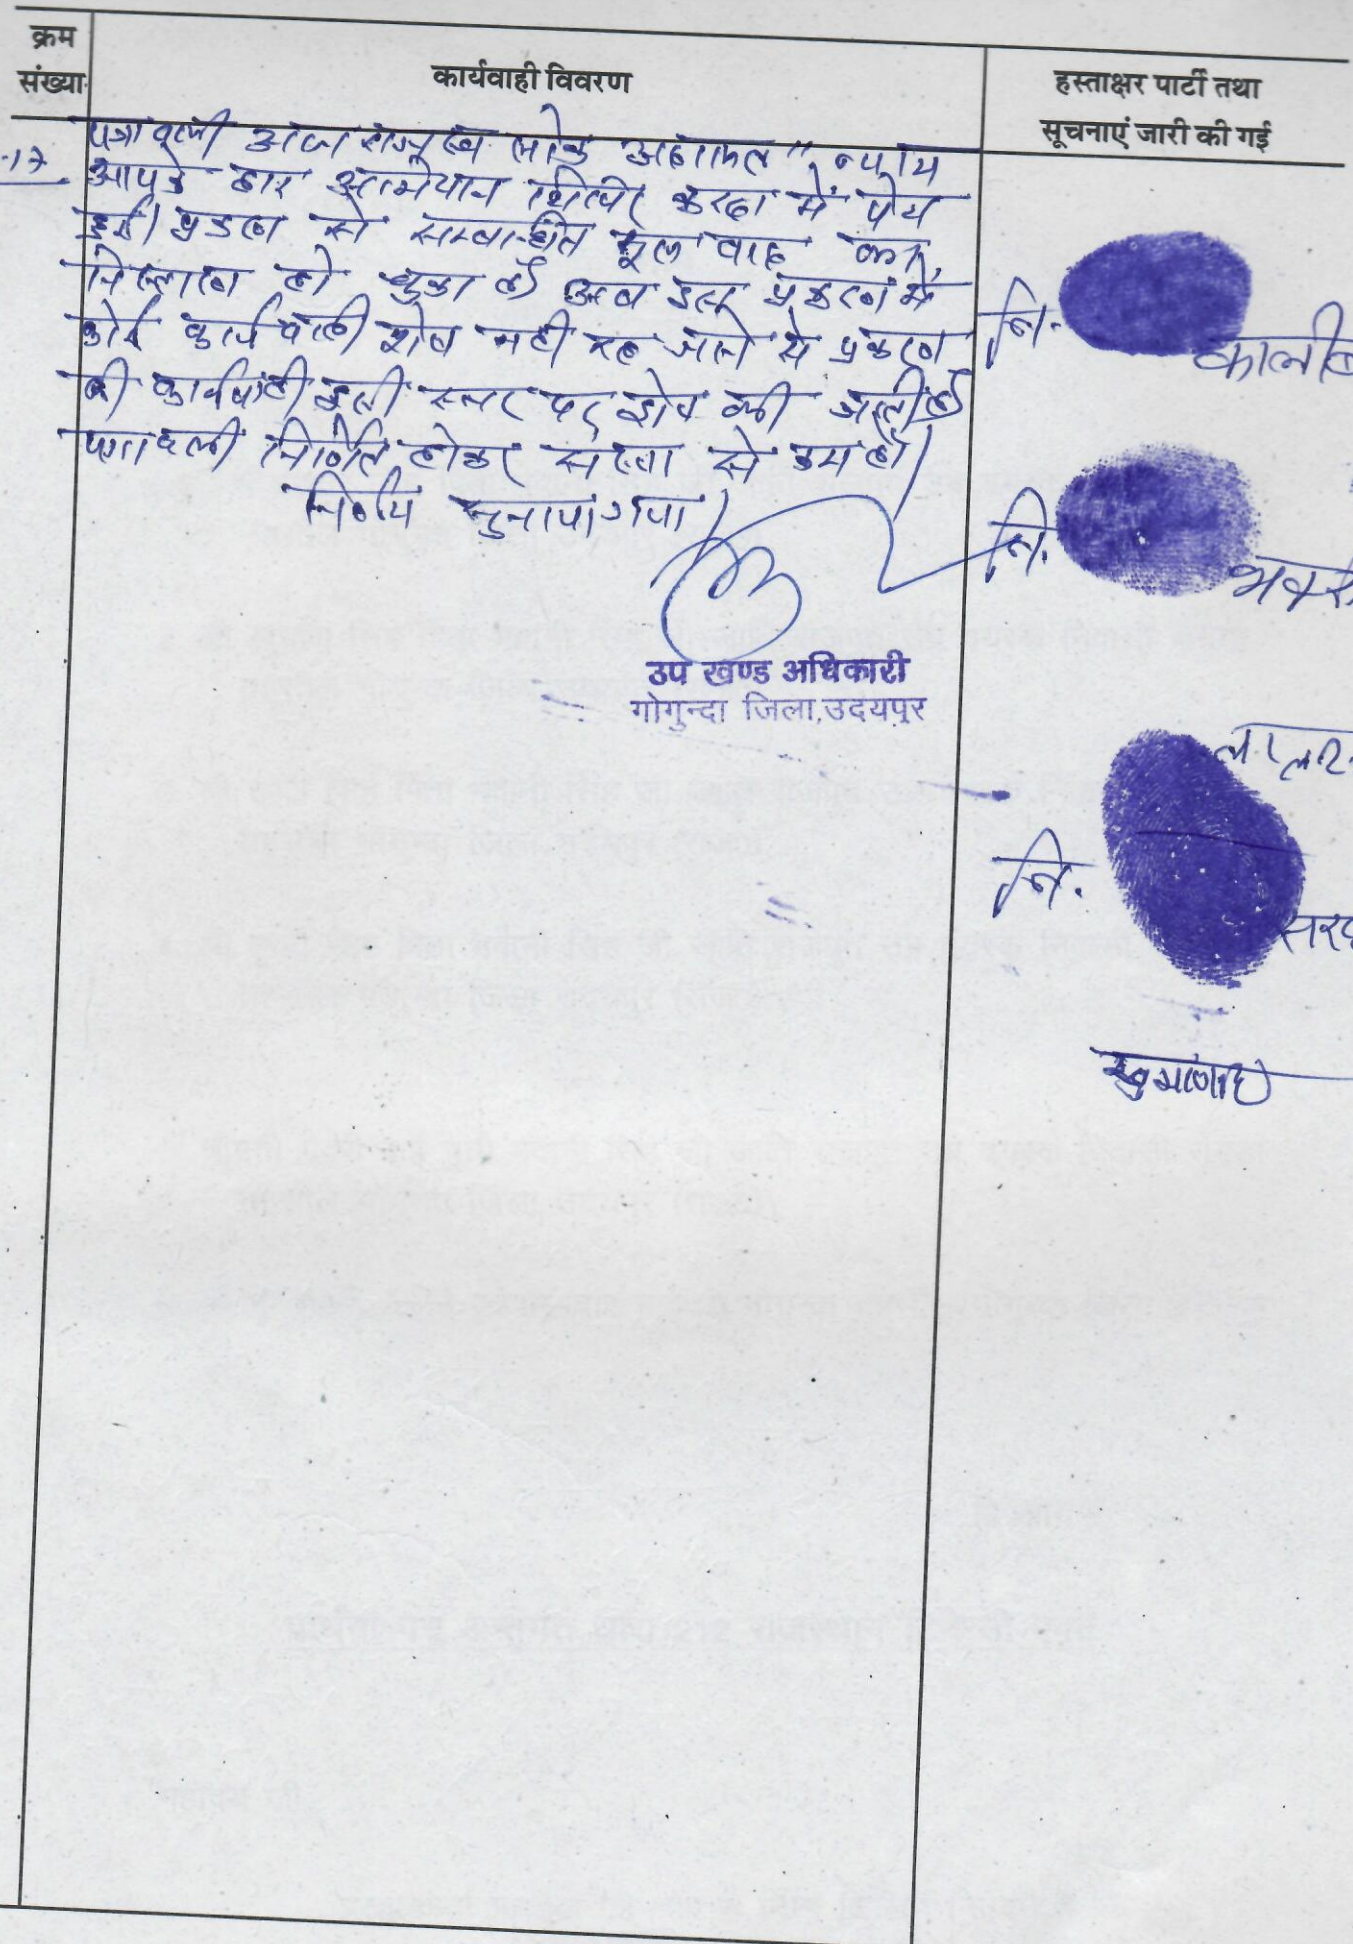 क्रम
संख्या
कार्यवाही विवरण
हस्ताक्षर पार्टी तथा
सूचनाएं जारी की गई
-17
पत्रावली आज राजस्व लोक अदालत "न्याय
आपके द्वार अभियान शिविर करदा में पेश
हुई। प्रकरण से सम्बन्धित मूल वाद का
निस्तारण हो चुका है अब इस प्रकरण में
कोई कार्यवाही शेष नही रह जाने से प्रकरण
की कार्यवाही इसी स्तर पर की जाती है
पत्रावली निर्णित होकर संख्या से कम हो।
निर्णय सुनाया गया।
उप खण्ड अधिकारी
गोगुन्दा जिला, उदयपुर
नि.
नि.
नि.